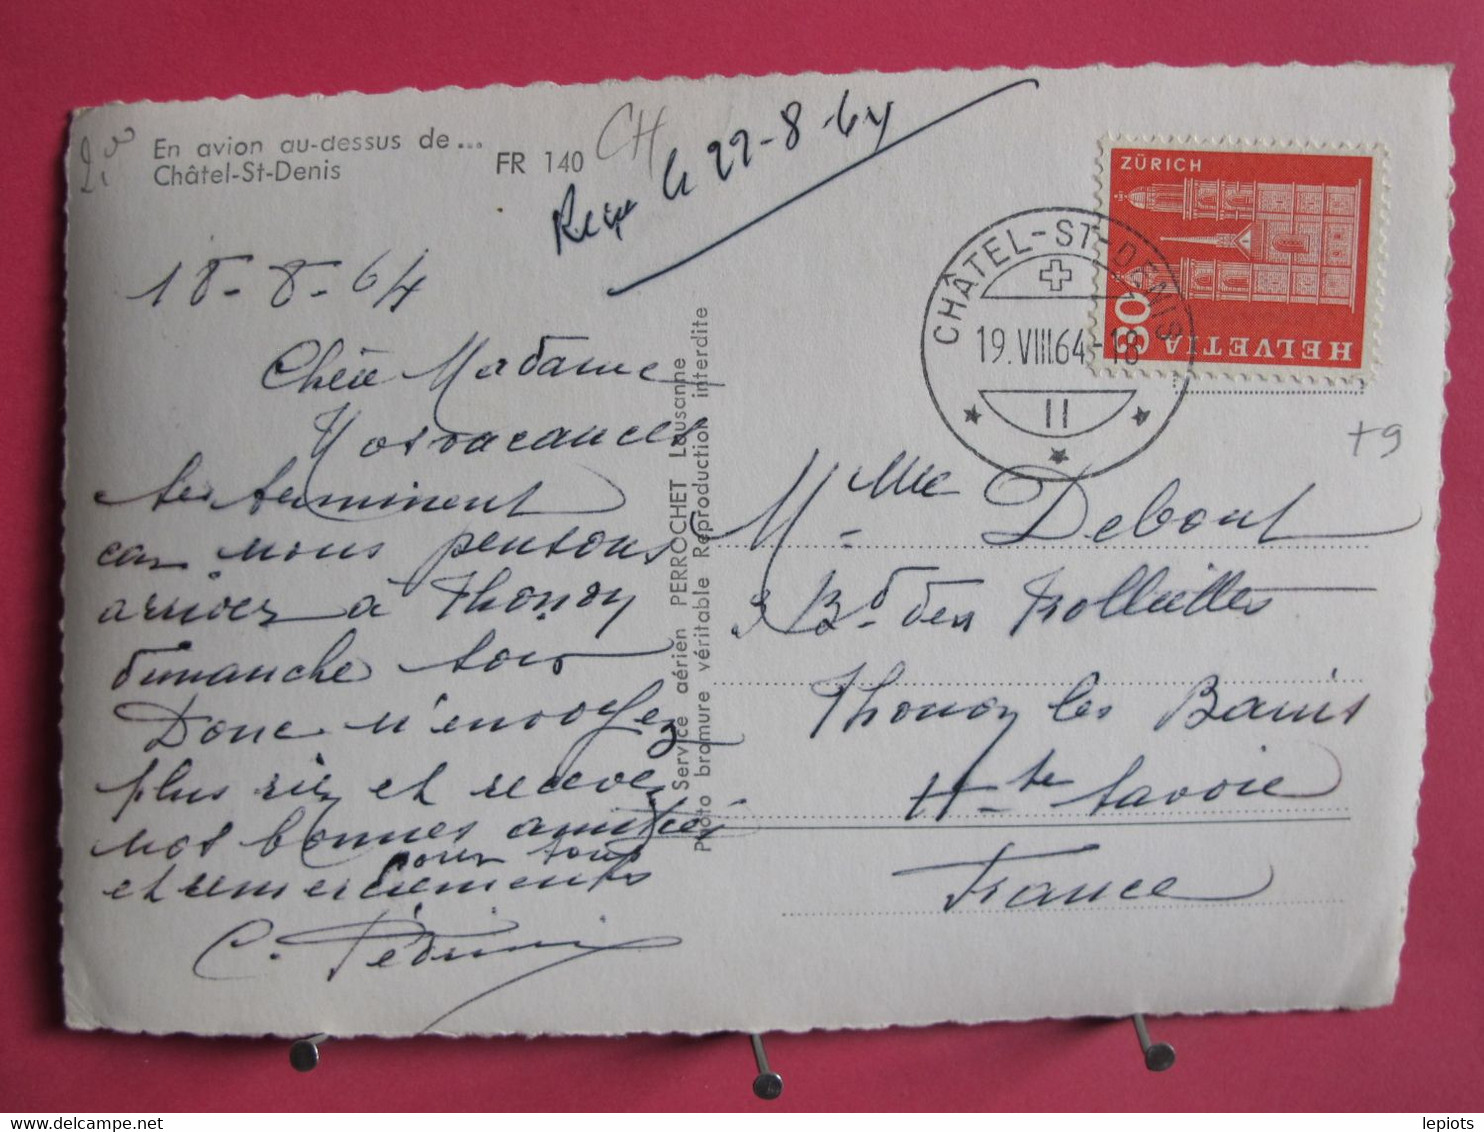 En avion au-dessus de...
Châtel-St-Denis
FR 140
CH
le 22-8-64
18-8-64
Chère Madame
Nos vacances
se terminent
car nous pensons
arriver à Thonon
dimanche soir
Donc n'envoyez
plus rien et recevez
nos bonnes amitiés
pour tous
et remerciements
Service aérien PERROCHET Lausanne
Photo bromure véritable Reproduction interdite
ZÜRICH
HELVETIA
30
CHÂTEL-ST-DENIS
19.VIII.64-18
II
+9
Mme Debout
3 Bd des
Thonon les Bains
Hte Savoie
France
lepiots